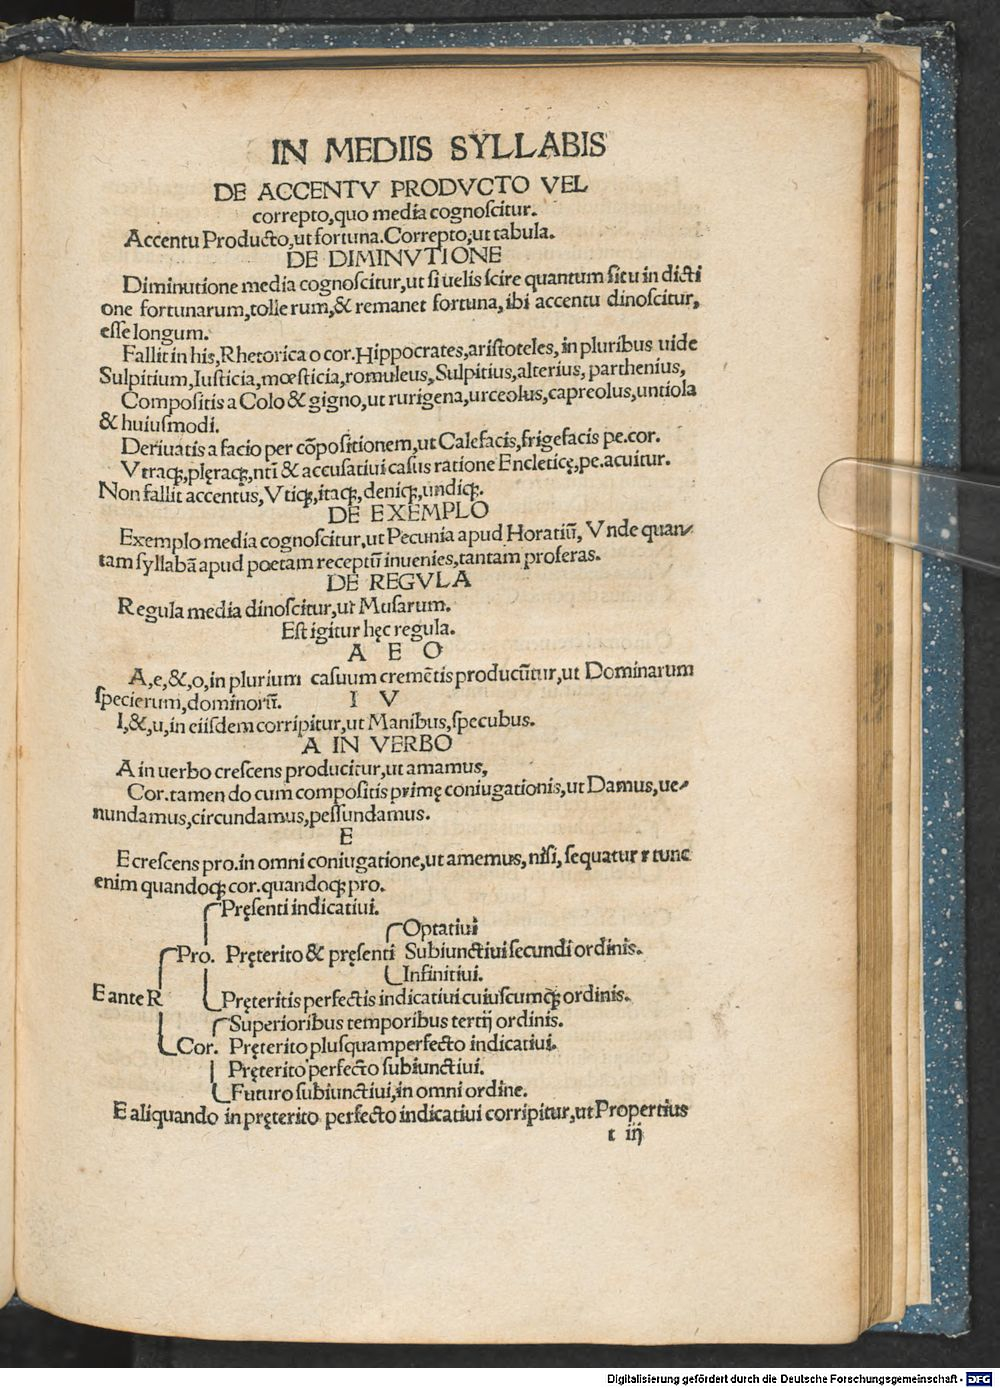 IN MEDIIS SYLLABIS
DE ACCENTV PRODVCTO VEL
correpto,quo media cognoſcitur.
Accentu Producto,ut fortuna.Correpto,ut tabula.
DE DIMINVTIONE
Diminutione media cognoſcitur,ut ſi uelis ſcire quantum ſit u in dicti
one fortunarum,tolle rum,& remanet fortuna,ibi accentu dinoſcitur,
eſſe longum.
Fallit in his,Rhetorica o cor.Hippocrates,ariſtoteles,in pluribus uide
Sulpitium,Iuſticia,mœſticia,romuleus,Sulpitius,alterius, parthenius,
Compoſitis a Colo & gigno,ut rurigena,urceolus,capreolus,untiola
& huiuſmodi.
Deriuatis a facio per cõpoſitionem,ut Calefacis,frigefacis pe.cor.
Vtraqꝫ,plęraqꝫ,ntĩ & accuſatiui caſus ratione Encleticę,pe.acuitur.
Non fallit accentus,Vtiqꝫ,itaqꝫ,deniqꝫ,undiqꝫ.
DE EXEMPLO
Exemplo media cognoſcitur,ut Pecunia apud Horatiũ, Vnde quan-
tam ſyllabã apud poetam receptũ inuenies,tantam proferas.
DE REGVLA
Regula media dinoſcitur,ut Muſarum.
Eſt igitur hęc regula.
A E O
A,e,&,o,in plurium caſuum cremẽtis producũtur,ut Dominarum
ſpecierum,dominorũ. I V
I,&,u,in eiiſdem corripitur,ut Manibus,ſpecubus.
A IN VERBO
A in uerbo creſcens producitur,ut amamus,
Cor.tamen do cum compoſitis primę coniugationis,ut Damus,ue-
nundamus,circundamus,peſſundamus.
E
E creſcens pro.in omni coniugatione,ut amemus,niſi, ſequatur r tunc
enim quandoqꝫ cor.quandoqꝫ pro.
Pręſenti indicatiui.
Optatiui
Pro. Pręterito & pręſenti Subiunctiui ſecundi ordinis.
Infinitiui.
E ante R Pręteritis perfectis indicatiui cuiuſcumqꝫ ordinis.
Superioribus temporibus tertij ordinis.
Cor. Pręterito pluſquamperfecto indicatiui.
Pręterito perfecto ſubiunctiui.
Futuro ſubiunctiui,in omni ordine.
E aliquando in pręterito perfecto indicatiui corripitur,ut Propertius
t iij
Digitalisierung gefördert durch die Deutsche Forschungsgemeinschaft - DFG